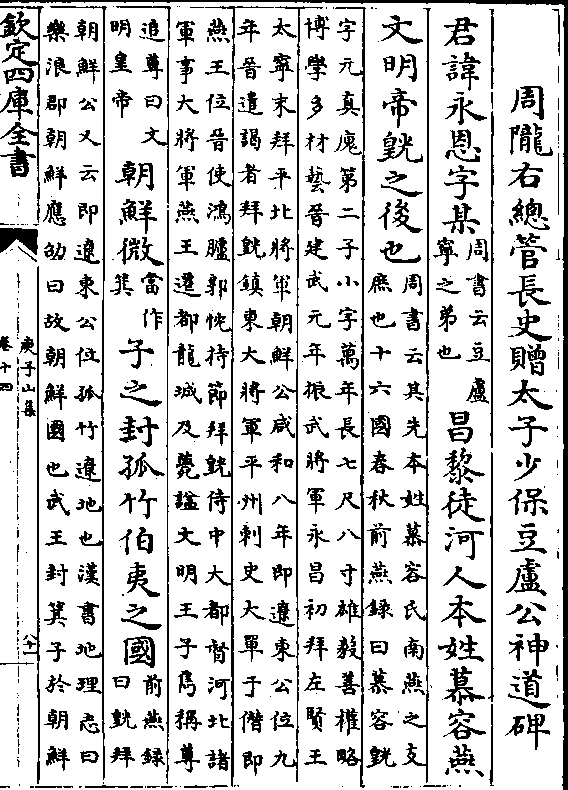 周隴右總管長史贈太子少保豆盧公神道碑
君諱永恩字某周書云豆盧寧之弟也昌黎徒河人本姓慕容燕
文明帝皝之後也周書云其先本姓慕容氏南燕之支庶也十六國春秋前燕録曰慕容皝
字元真廆第二子小字萬年長七尺八寸雄毅善權略
博學多材藝晉建武元年振武將軍永昌初拜左賢王
太寧末拜平北將軍朝鮮公咸和八年即遼東公位九
年晉遣謁者拜皝鎮東大將軍平州刺史大單于僭即
燕王位晉使鴻臚郭悕持節拜皝侍中大都督河北諸
軍事大將軍燕王遷都龍城及薨諡文明王子儁稱尊
追尊曰文明皇帝朝鮮微當作箕子之封孤竹伯夷之國前燕録曰皝拜
朝鮮公又云即遼東公位孤竹遼地也漢書地理志曰
樂浪郡朝鮮應劭曰故朝鮮國也武王封箕子於朝鮮
欽定四庫全書
庾子山集
卷十四
八十